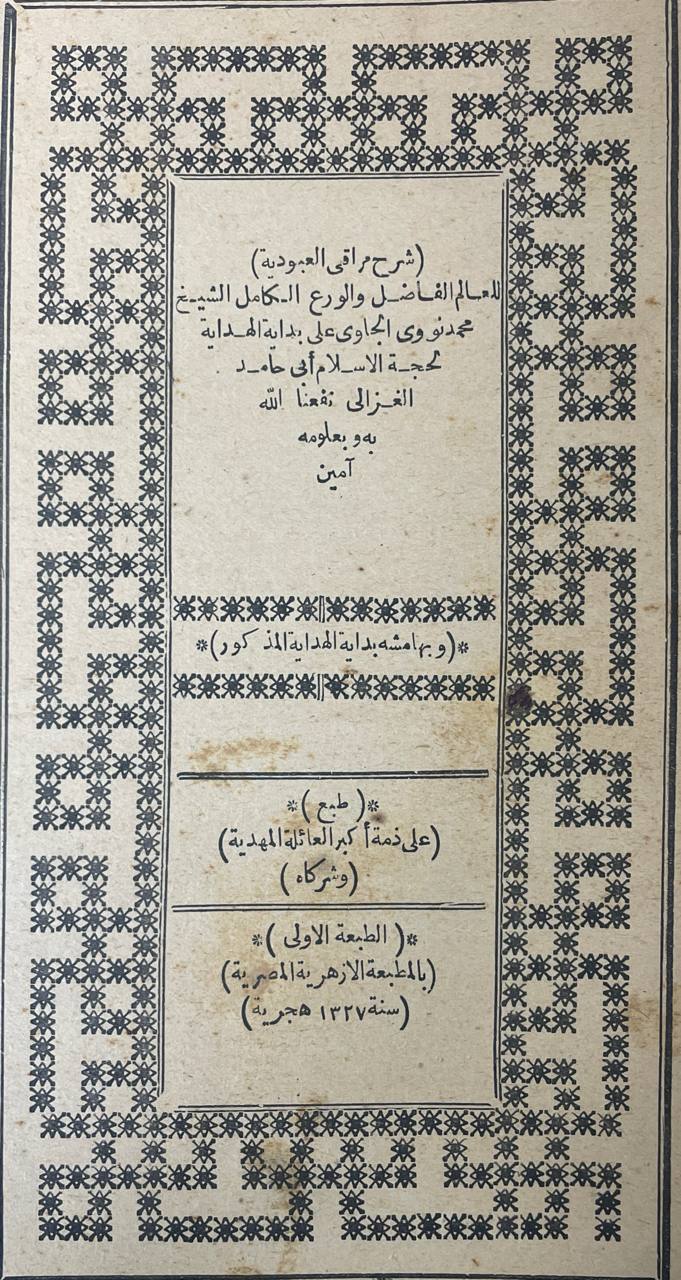 (شرح مراقى العبودية)
للعالم الفاضل والورع الكامل الشيخ
محمد نووى الجاوى على بداية الهداية
لحجة الاسلام أبى حامد
الغزالى نفعنا الله
به وبعلومه
آمين
*(وبهامشه بداية الهداية المذكور)*
*(طبع)*
(على ذمة أكبر العائلة المهدية)
(وشركاه)
*(الطبعة الاولى)*
(بالمطبعة الازهرية المصرية)
(سنة ١٣٢٧ هجرية)